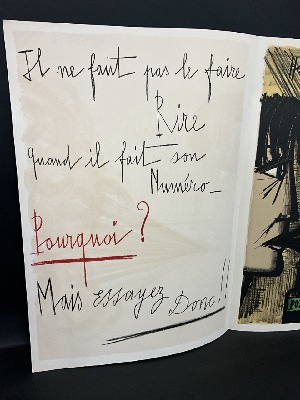 Il ne faut pas le faire
Rire
quand il fait son
Numéro_
Pourquoi ?
Mais essayez Donc!!